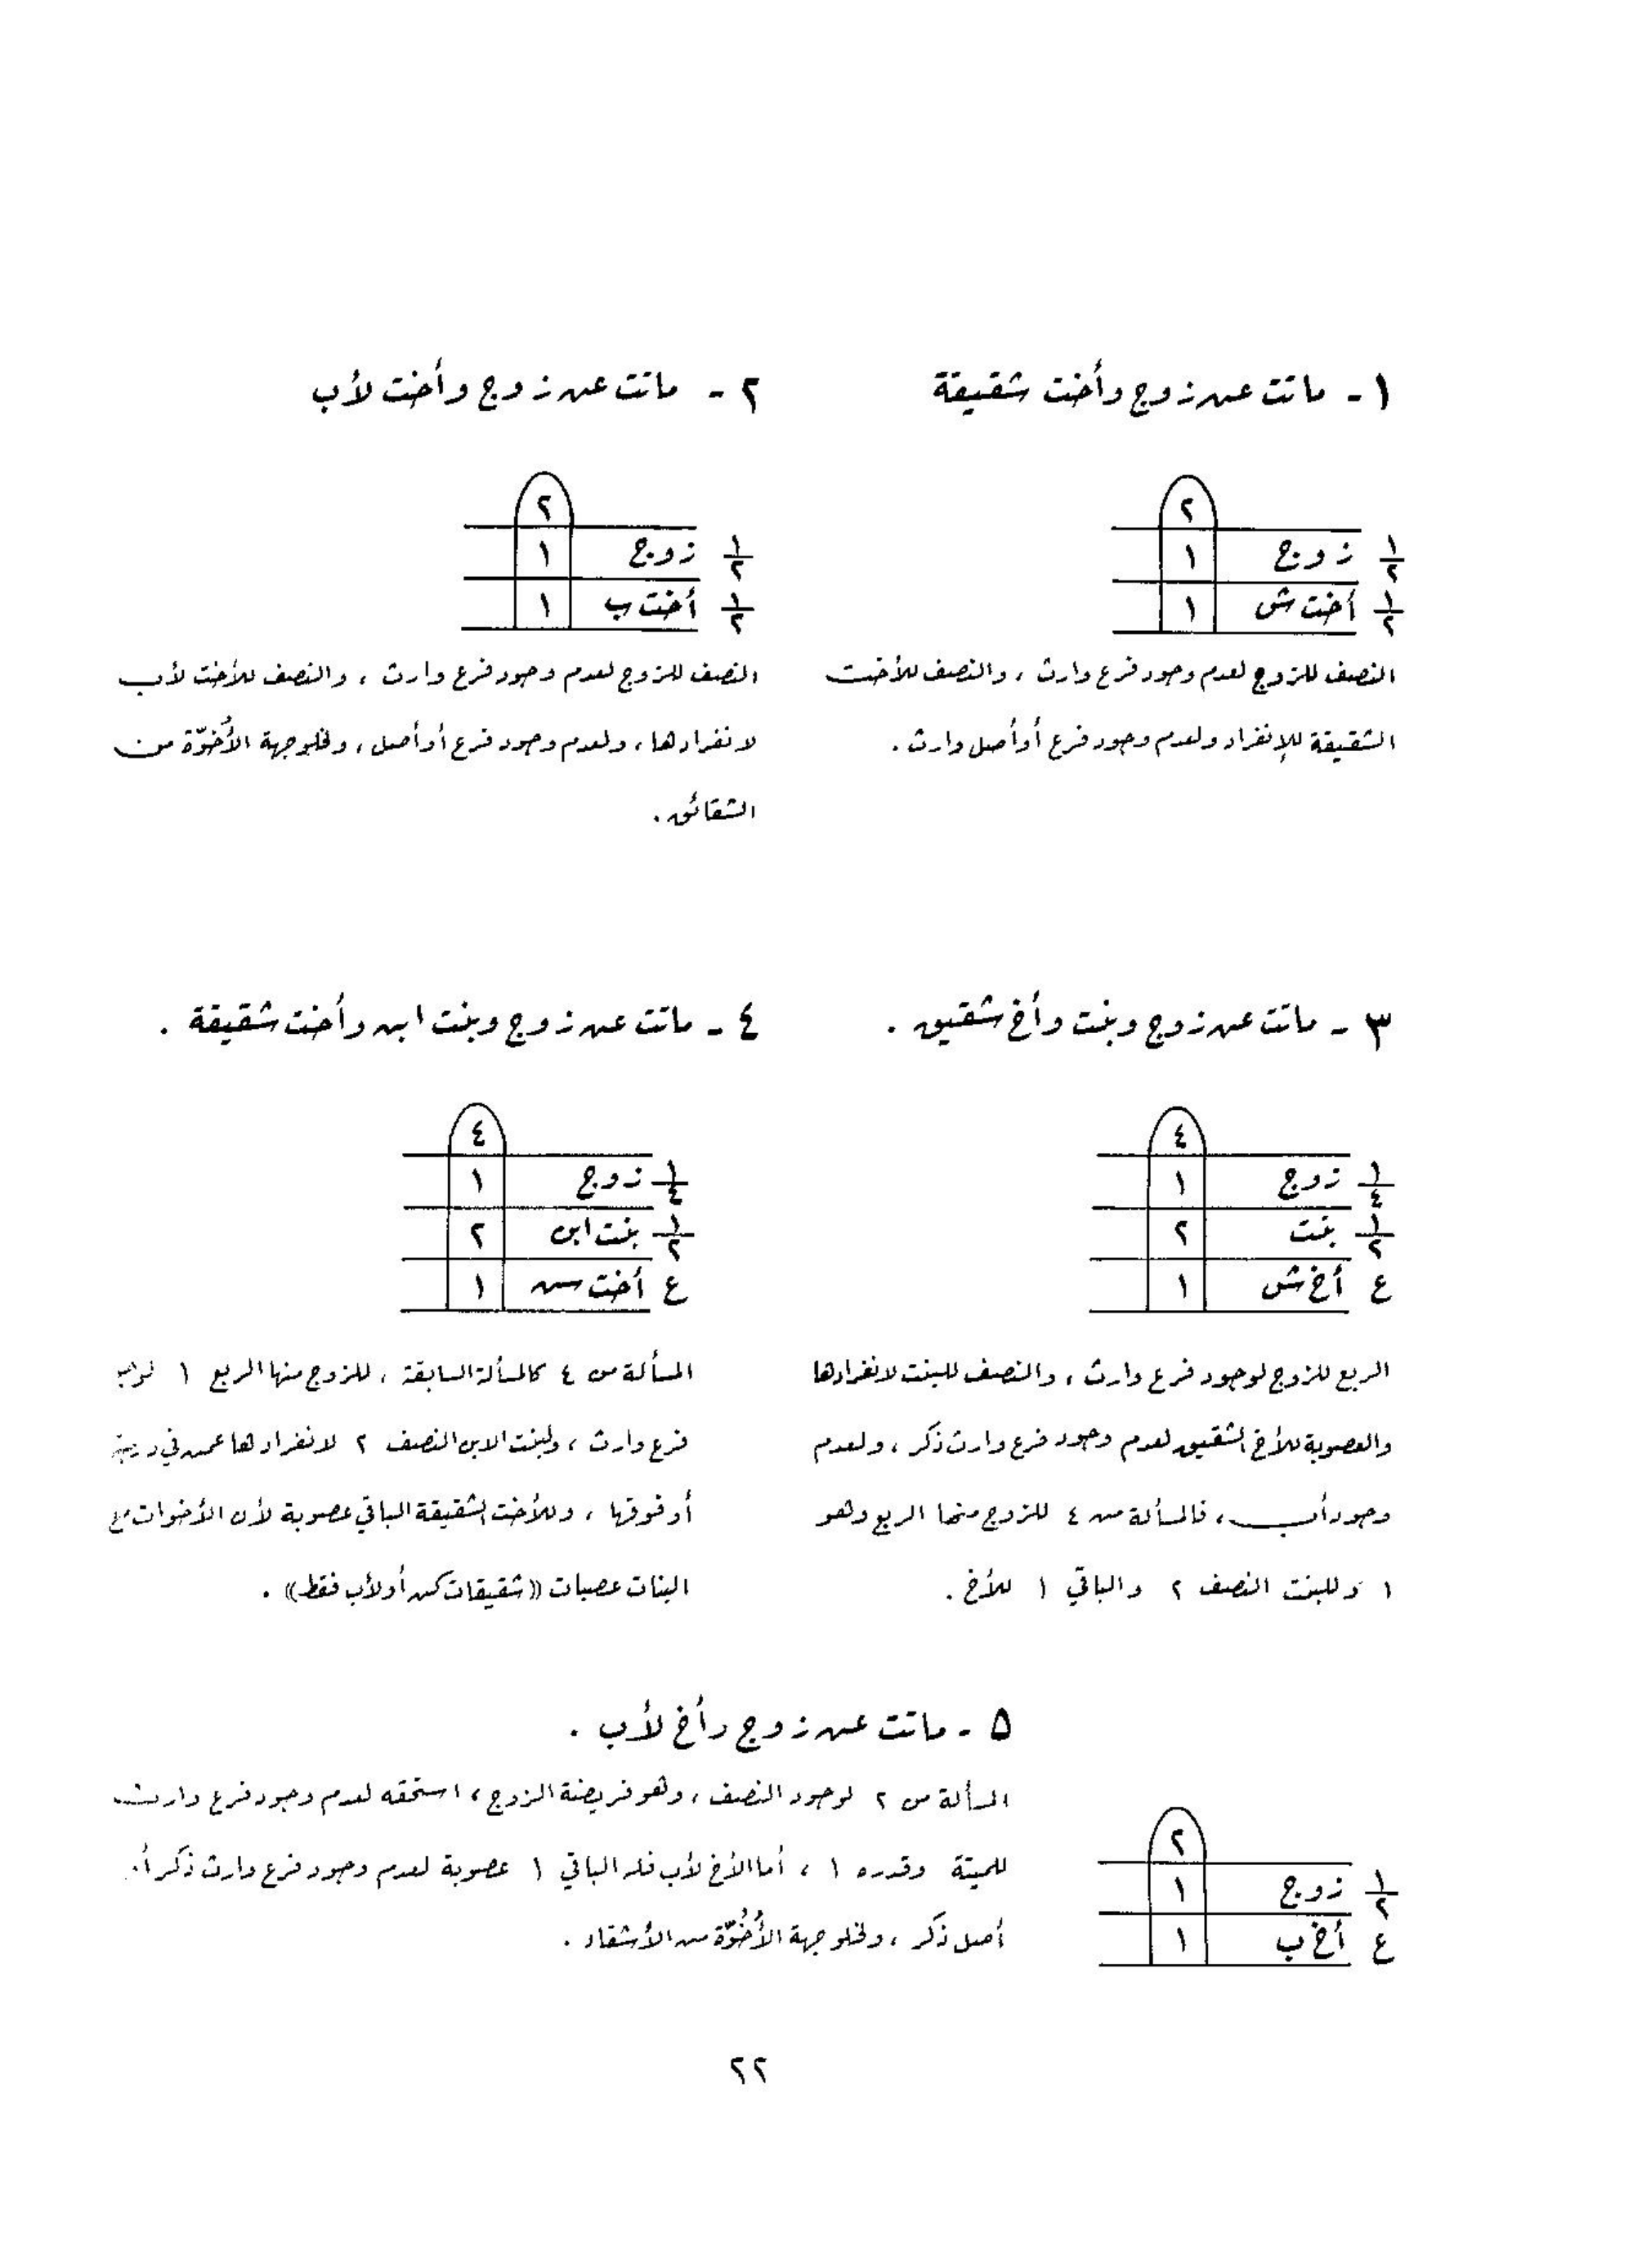 ١ - ماتت عن زوج وأخت شقيقة
٢
١/٢ زوج ١
١/٢ أخت ش ١
النصف للزوج لعدم وجود فرع وارث ، والنصف للأخت
الشقيقة للإنفراد ولعدم وجود فرع أو أصل وارث .
٢ - ماتت عن زوج وأخت لأب
٢
١/٢ زوج ١
١/٢ أخت ب ١
النصف للزوج لعدم وجود فرع وارث ، والنصف للأخت لأب
لانفرادها ، ولعدم وجود فرع أو أصل ، ولخلو جهة الأُخوّة من
الشقائق .
٣ - ماتت عن زوج وبنت وأخ شقيق .
٤
١/٤ زوج ١
١/٢ بنت ٢
ع أخ ش ١
الربع للزوج لوجود فرع وارث ، والنصف للبنت لانفرادها
والعصوبة للأخ الشقيق لعدم وجود فرع وارث ذكر ، ولعدم
وجود أب ، فالمسألة من ٤ للزوج منها الربع وهو
١ وللبنت النصف ٢ والباقي ١ للأخ .
٤ - ماتت عن زوج وبنت ابن وأخت شقيقة .
٤
١/٤ زوج ١
١/٢ بنت ابن ٢
ع أخت ش ١
المسألة من ٤ كالمسألة السابقة ، للزوج منها الربع ١
فرع وارث ، ولبنت الابن النصف ٢ لانفرادها عمن في
أو فوقها ، وللأخت الشقيقة الباقي عصوبة لأن الأخوات مع
البنات عصبات ((شقيقات كن أو لأب فقط)) .
٥ - ماتت عن زوج وأخ لأب .
٢
١/٢ زوج ١
ع أخ ب ١
المسألة من ٢ لوجود النصف ، وهو فريضة الزوج ، استحقه لعدم وجود فرع وارث
للميتة وقدره ١ ، أما الأخ لأب فله الباقي ١ عصوبة لعدم وجود فرع وارث ذكر أ
أصل ذكر ، ولخلو جهة الأُخُوّة من الأشقاء .
٢٢